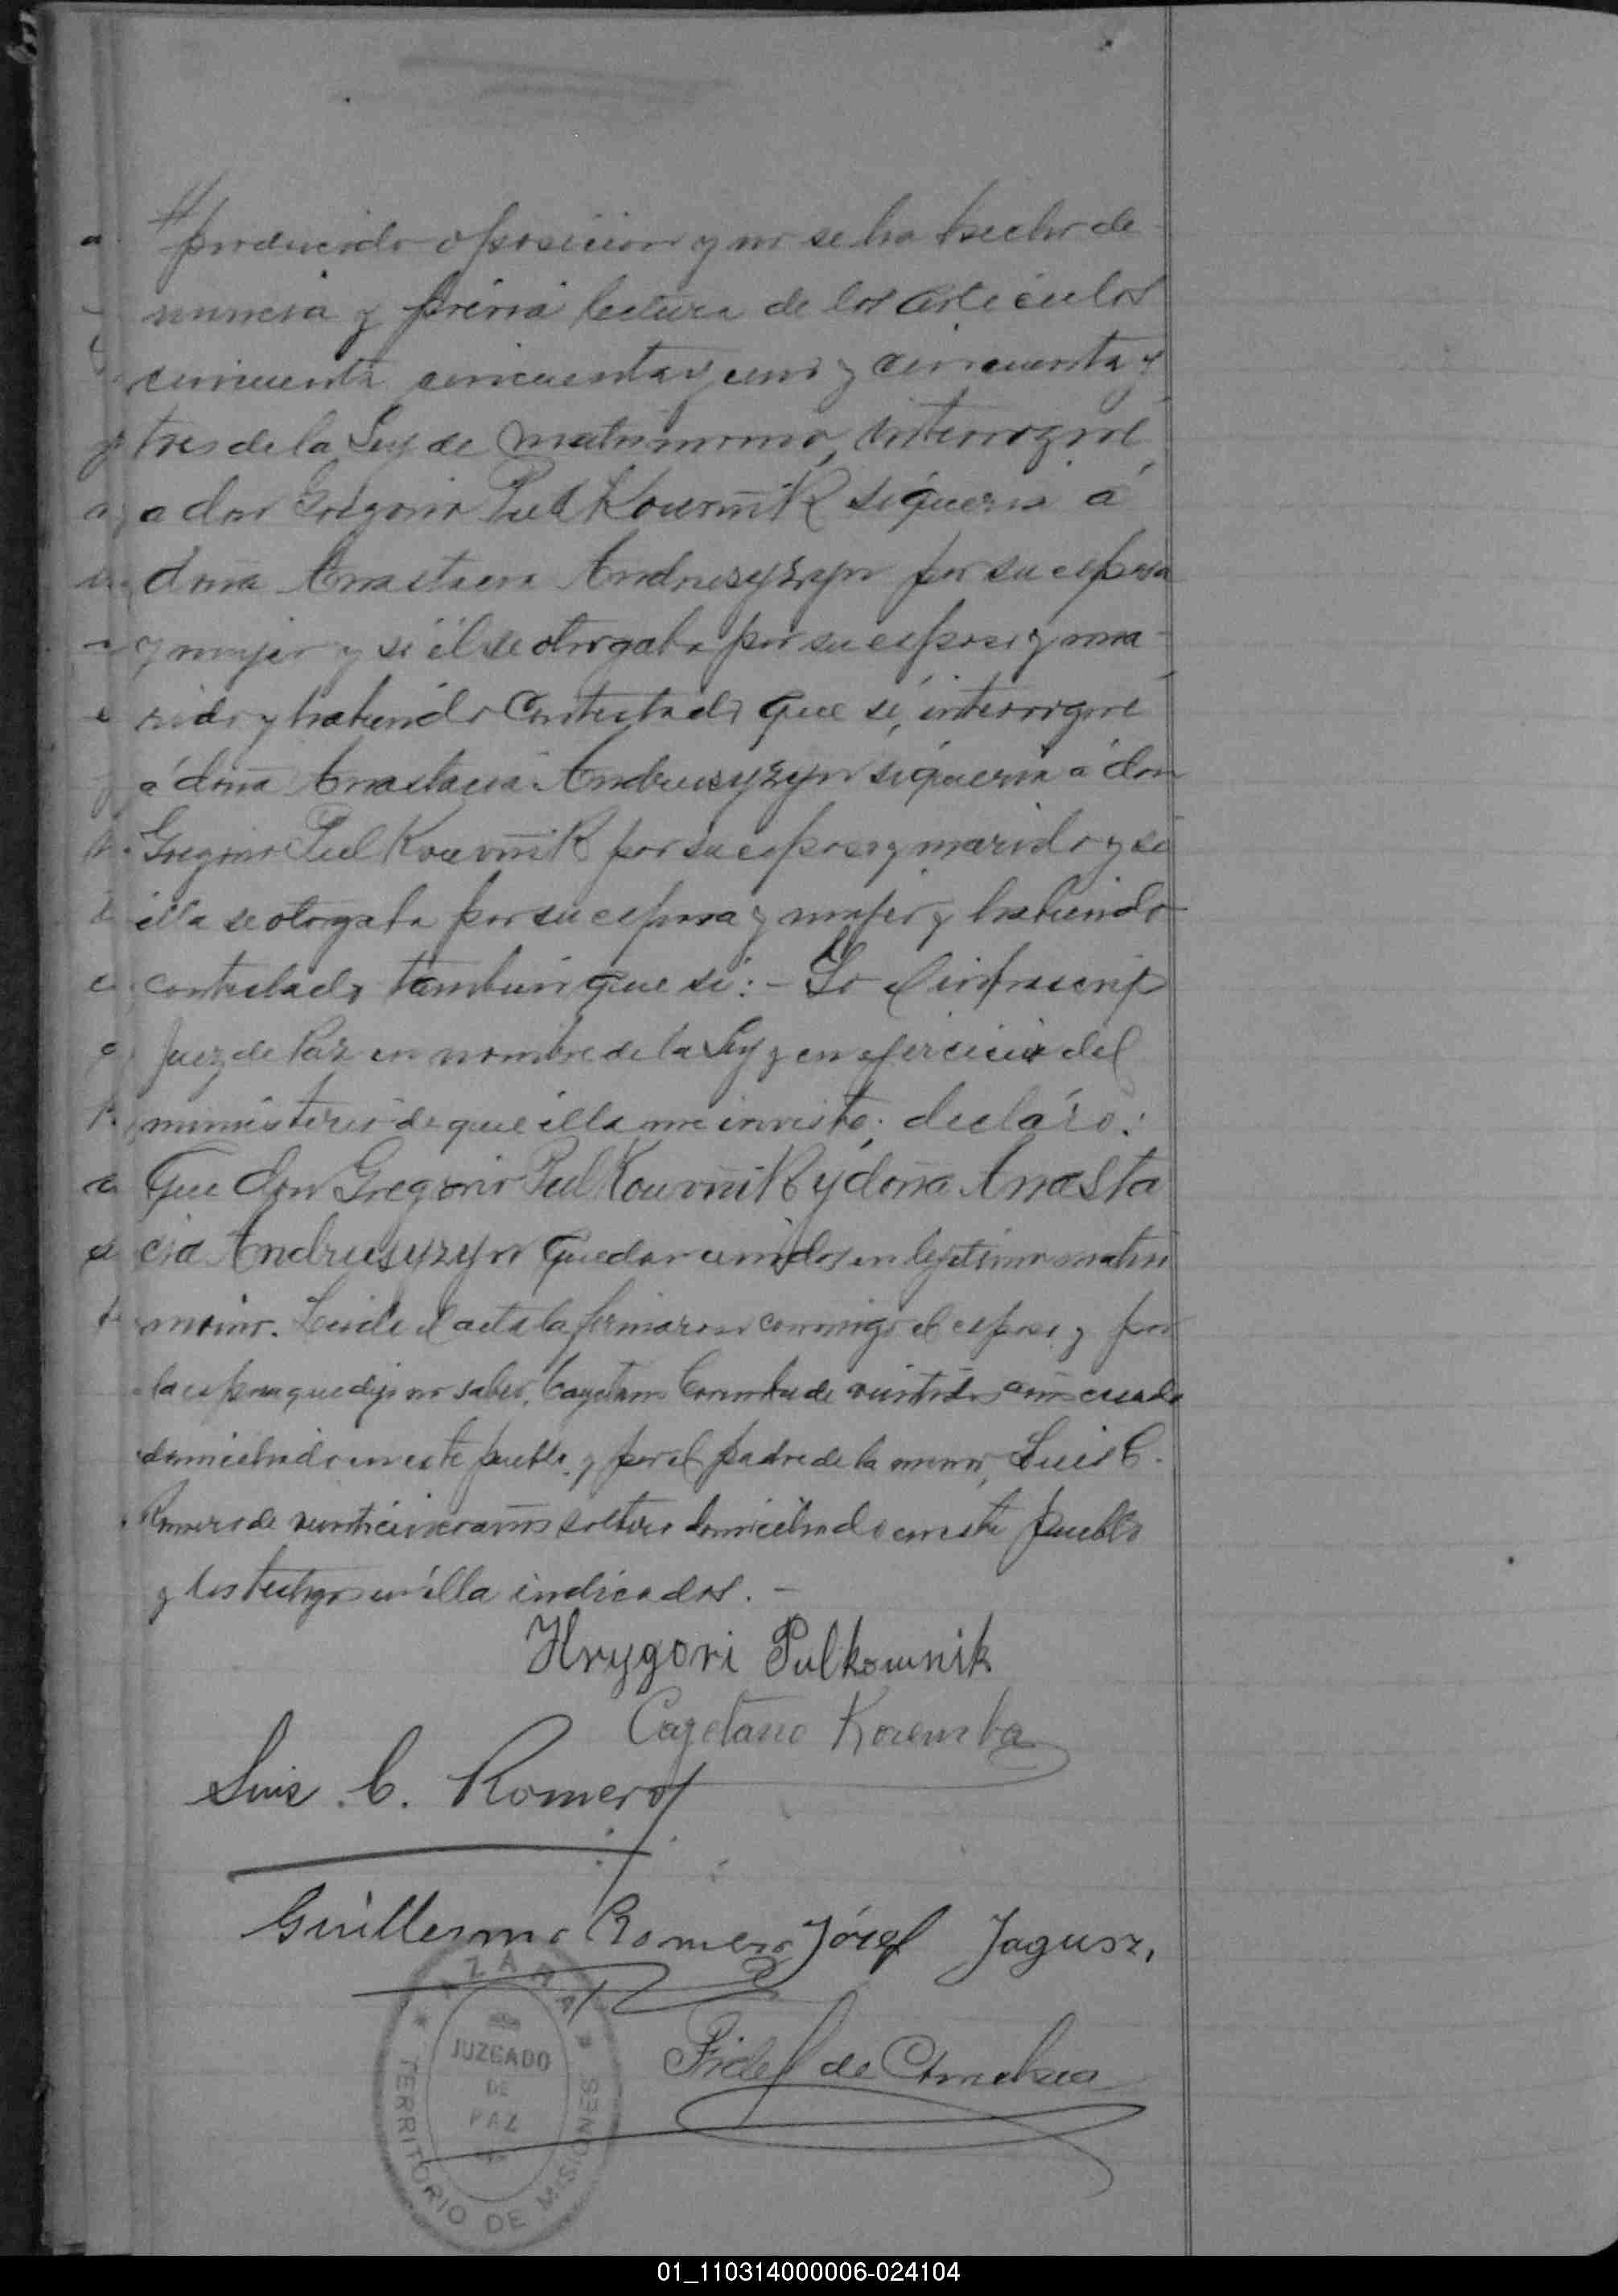 producido oposicion y no se ha hecho de-
nuncia y prévia lectura de los articulos
cincuenta cincuenta y uno y cincuenta y
tres de la Ley de matrimonio, interrogué
a don Gregorio PulKouvniK si queria á
doña Anastacia Andrusyzyn por su esposa
y mujer y si él se otorgaba por su esposo y ma-
rido y habiendo contestado que si, interrogué
á doña Anastacia Andrusyzyn si queria á don
Gregorio PulKouvniK por su esposo y marido y si
ella se otorgaba por su esposa y mujer y habiendo
contestado tambien que si: - Yo el infrascrip
Juez de Paz en nombre de la Ley y en ejercicio del
ministerio de que ella me inviste; decláro:
Que don Gregorio PulKouvniK y doña Anasta
cia Andrusyzyn quedan unidos en legitimo matri
monio. Leida el acta la firmaron conmigo el esposo y por
la esposa que dijo no saber, Cayetano Coremba de veintidos años casado
domiciliado en este pueblo y por el padre de la menor, Luis C.
Romero de veinticinco años soltero domiciliado en este pueblo
y los testigos en ella indicados. -
Hrygori Pulkownik
Cayetano Koremba
Luis C. Romero
Guillermo Romero Józef Jagusz,
Fidel de
AZARA
JUZGADO
DE
PAZ
TERRITORIO DE MISIONES
01_110314000006-024104